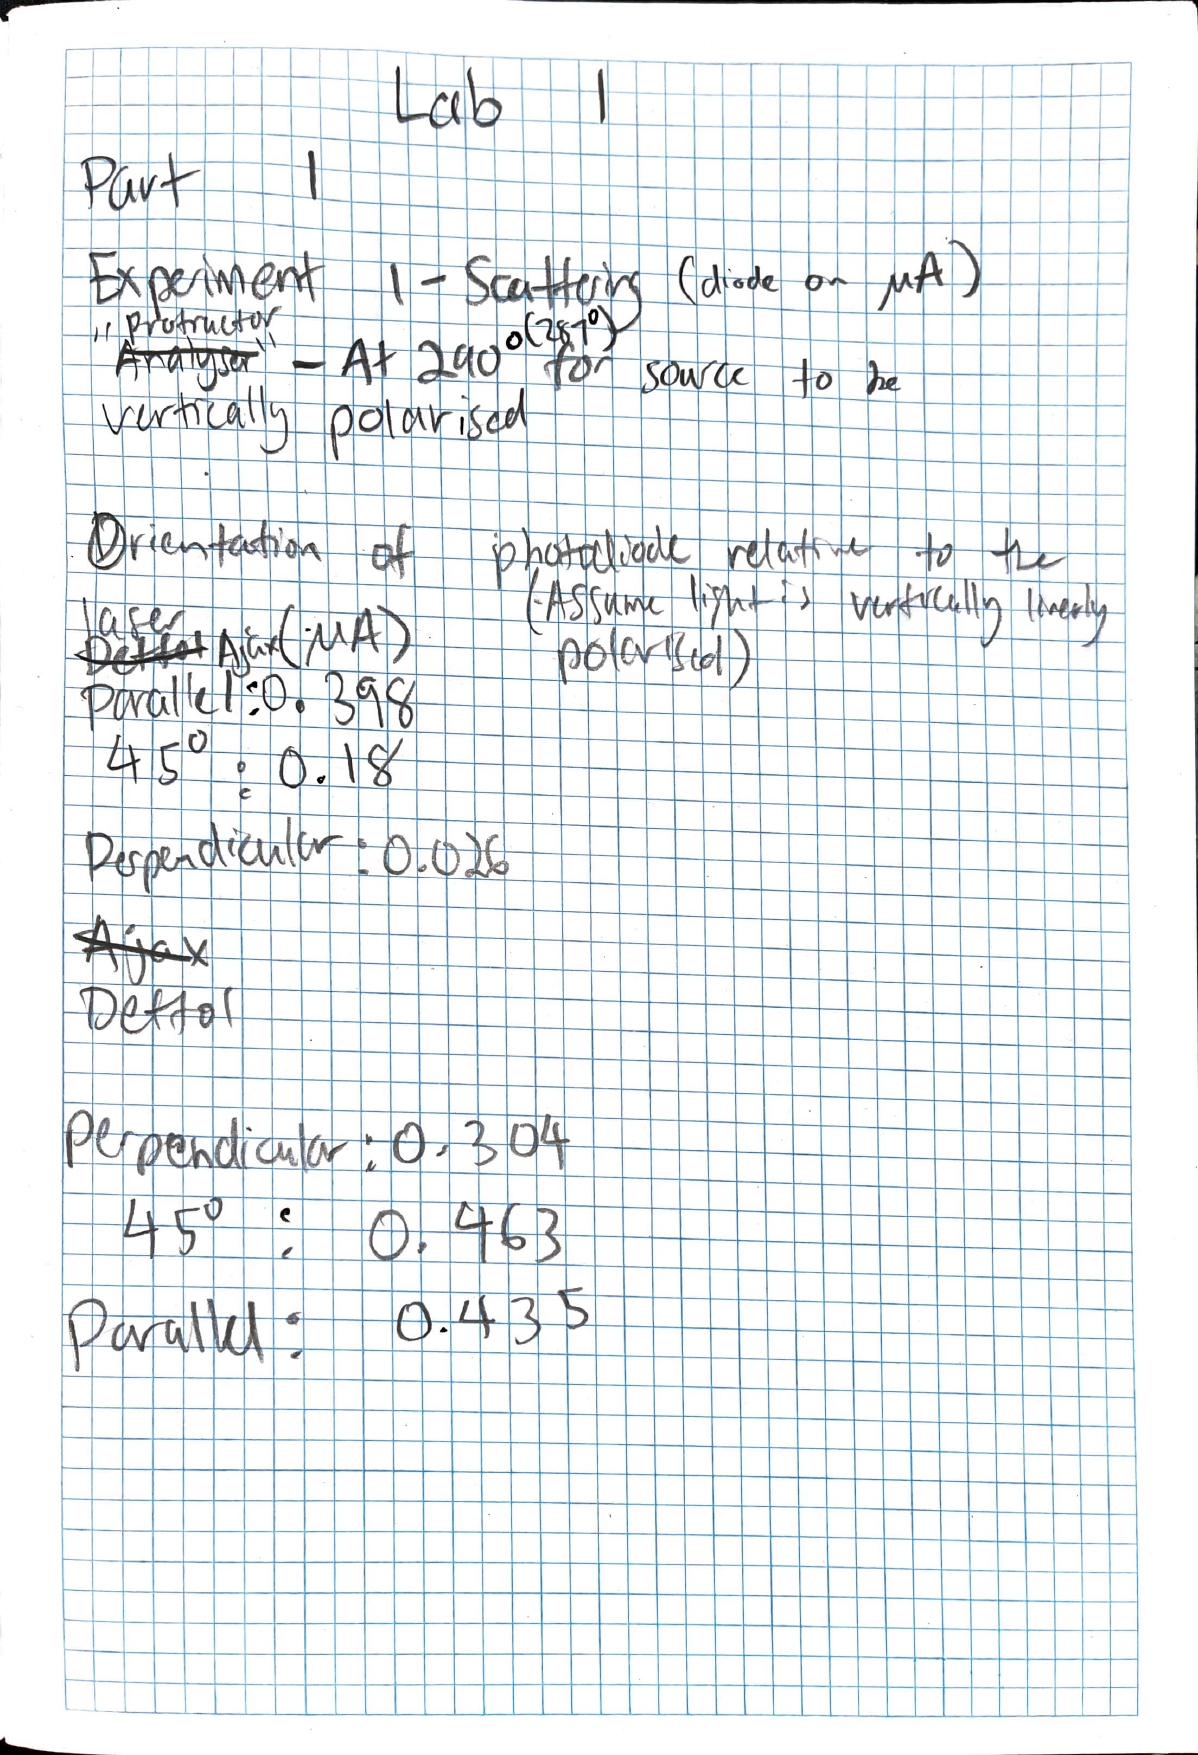 Lab 1
Part 1
Experiment 1 - Scattering (diode on μA)
"Protractor"
Analyser - At 290° (287°) for source to be
vertically polarised
Orientation of photodiode relative to the
laser (Assume light is vertically linerly
polarised)
Dettol Ajax (μA)
Parallel: 0.398
45° : 0.18
Perpendicular: 0.026
Ajax
Dettol
Perpendicular: 0.304
45° : 0.463
Parallel: 0.435